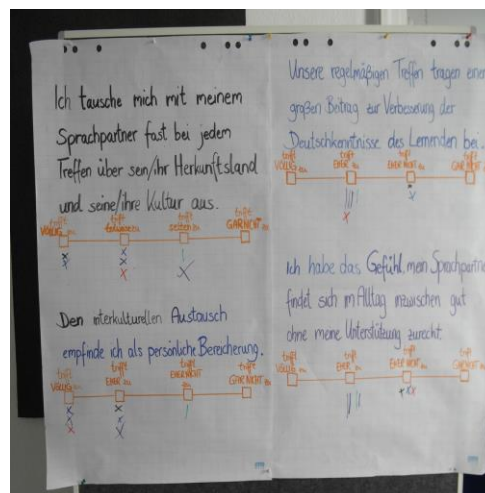 Ich tausche mich mit meinem
Sprachpartner fast bei jedem
Treffen über sen/ihr Herkunftsland
und seine/ihre Kultur aus.
trifft trifft trifft trifft
VÖLLIG zu zu GAR NICHT zu
Den interkulturellen Austausch
empfinde ich als persönliche Bereicherung.
trifft trifft trifft trifft
VÖLLIG zu EHER zu EHER NICHT zu GAR NICHT zu
Unsere regelmäßigen Treffen tragen einen
großen Beitrag zur Verbesserung der
Deutschkenntnisse des Lernenden bei.
trifft trifft trifft trifft
VÖLLIG zu EHER zu EHER NICHT zu GAR NICHT zu
Ich habe das Gefühl, mein Sprachpartne
findet sich im Alltag inzwischen gut
ohne meine Unterstützung zurecht.
trifft trifft trifft trifft
VÖLLIG zu EHER zu EHER NICHT zu GAR NICHT zu